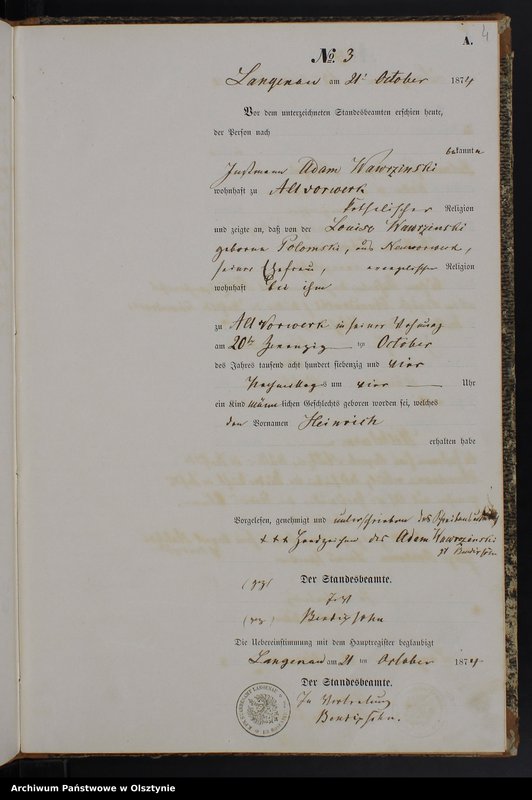 4
A.
No. 3
Langenau am 21t October 1874
Vor dem unterzeichneten Standesbeamten erschien heute,
der Person nach
bekannt
Instmann Adam Wawrzinski
wohnhaft zu Altvorwerk
katholischer Religion
und zeigte an, daß von der Louise Wawrzinski
geborne Polomski, aus Neuvorwerk,
seiner Ehefrau, evangelischer Religion
wohnhaft bei ihm
zu Altvorwerk in seiner Wohnung
am 20ten Zwanzig ten October
des Jahres tausend acht hundert siebenzig und vier
Nachmittags um vier Uhr
ein Kind männlichen Geschlechts geboren worden sei, welches
den Vornamen Heinrich
erhalten habe
Vorgelesen, genehmigt und unterschrieben des Schreibens
+++ Handzeichen des Adam Wawrzinski
Bendixsohn
Der Standesbeamte.
(gez)
(gez) Bendixsohn
Die Uebereinstimmung mit dem Hauptregister beglaubigt
Langenau am 21 ten October 1874
Der Standesbeamte.
In Vertretung
Bendixsohn.
Archiwum Państwowe w Olsztynie